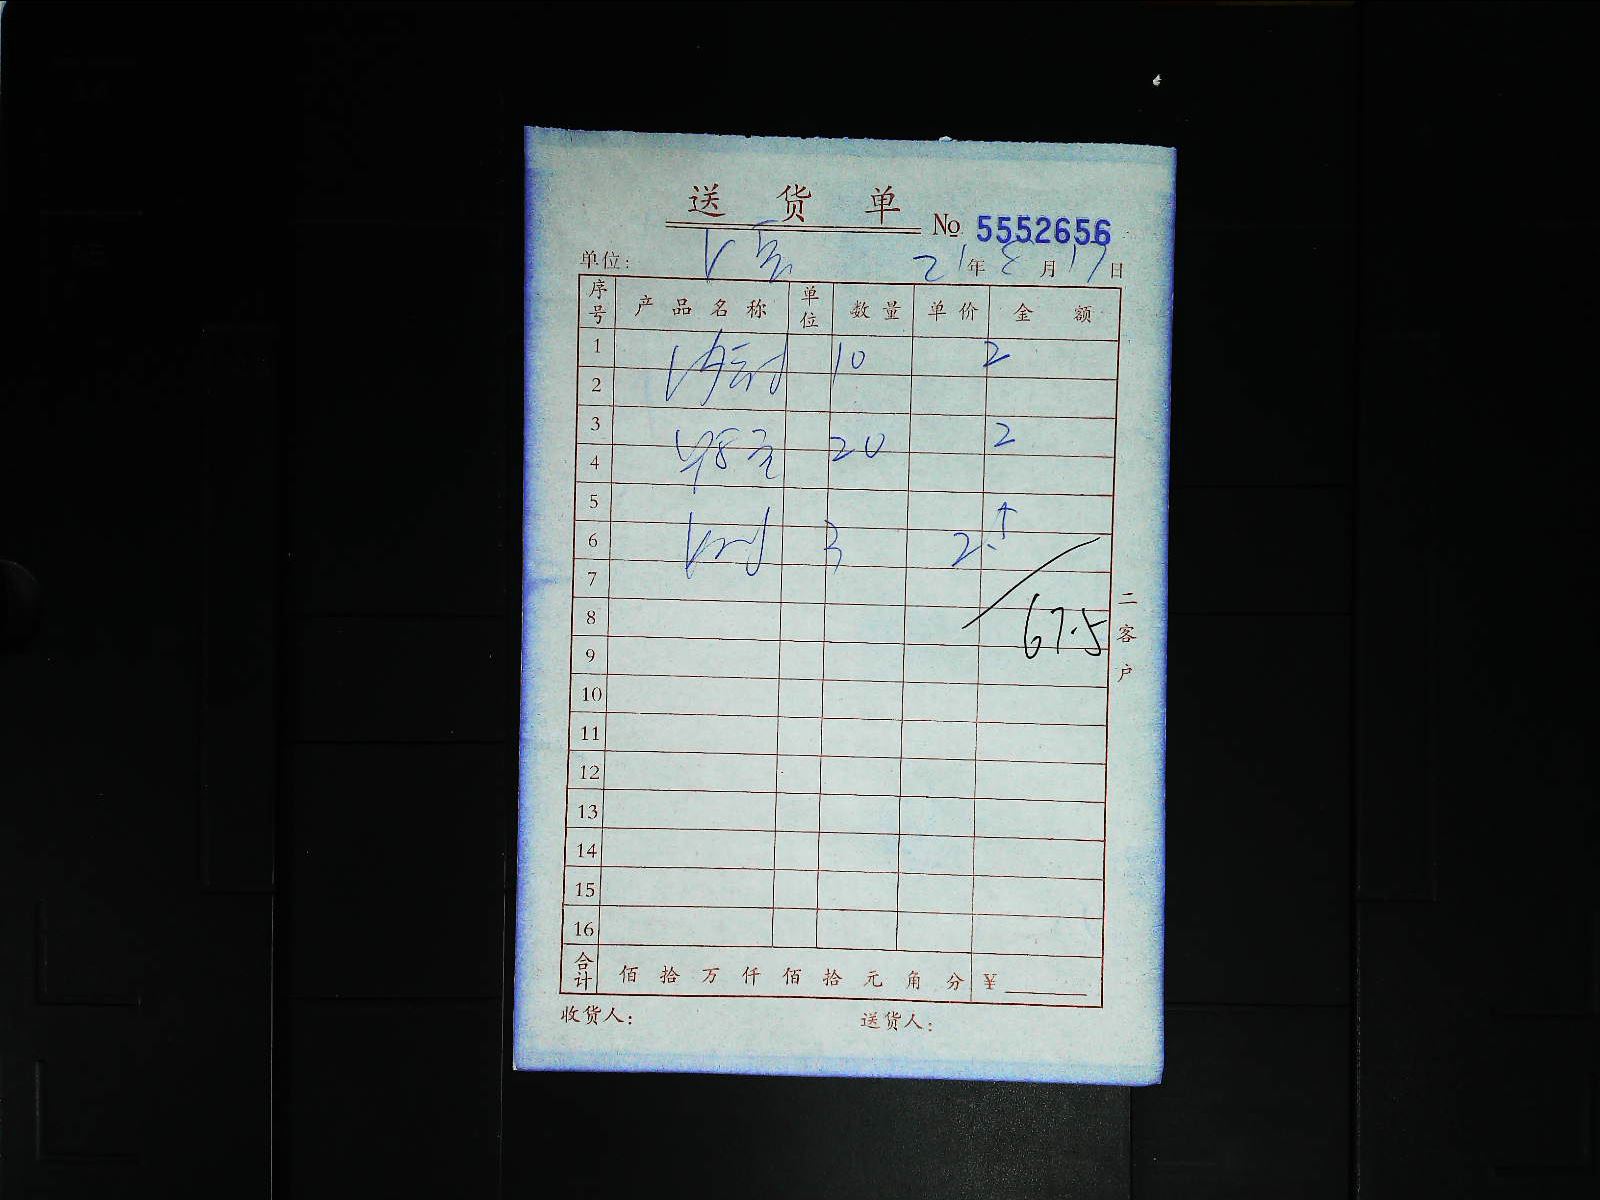 送货单
No 5552656
单位: 21年8月17日
序号 产品名称 单位 数量 单价 金额
1 10 2
2
3
4 20 2
5
6 3 2.5
7
8 67.5
9
10
11
12
13
14
15
16
合计 佰拾万仟佰拾元角分 ¥
收货人: 送货人:
二客户